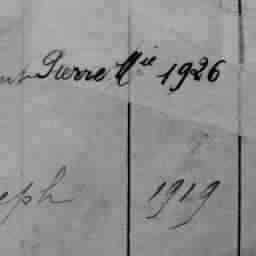 Pierre Mie 1926
eph 1919